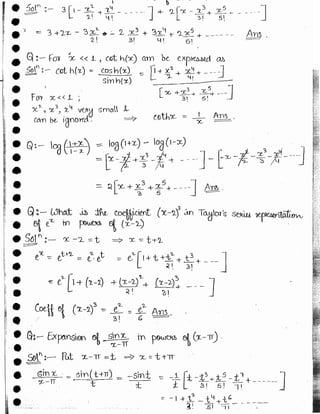 Solⁿ :- 3[1 - x²/2! + x⁴/4! - - - -] + 2[x - x³/3! + x⁵/5! - - - -]
= 3 + 2x - 3x²/2! - 2x³/3! + 3x⁴/4! + 2x⁵/5! - - - - Ans.
Q :- For x << 1, cot h(x) can be expressed as
Solⁿ :- cot h(x) = cos h(x)/sin h(x) = [1 + x²/2! + x⁴/4! + - - - -]
[x + x³/3! + x⁵/5! - - -]
For x << 1 ;
x², x³, x⁴ very small &
can be ignored ⟹ cothx = 1/x Ans.
Q:- log((1+x)/(1-x)) = log(1+x) - log(1-x)
= [x - x²/2 + x³/3 - x⁴/4 + - - - -] - [-x - x²/2 - x³/3 - x⁴/4 - - -]
= 2[x + x³/3 + x⁵/5 + - - - -] Ans.
Q :- What is the coefficient (x-2)³ in Taylor's series
of eˣ in powers of (x-2)
Solⁿ :- x - 2 = t ⟹ x = t+2
eᵗ⁺² = e².eᵗ = e²[1 + t + t²/2! + t³/3! + - - -]
= e²[1 + (x-2) + (x-2)²/2! + (x-2)³/3! + - - - -]
Coeff of (x-2)³ = e²/3! = e²/6 Ans.
Q:- Expansion of sin x/(x-π) in powers of (x-π).
Solⁿ:- Put x-π = t ⟹ x = t+π
sin x/(x-π) = sin(t+π)/t = -sint/t = -1/t [t - t³/3! + t⁵/5! - t⁷/7! + - - - -]
= -1 + t²/3! - t⁴/5! + t⁶/7! - - - - -